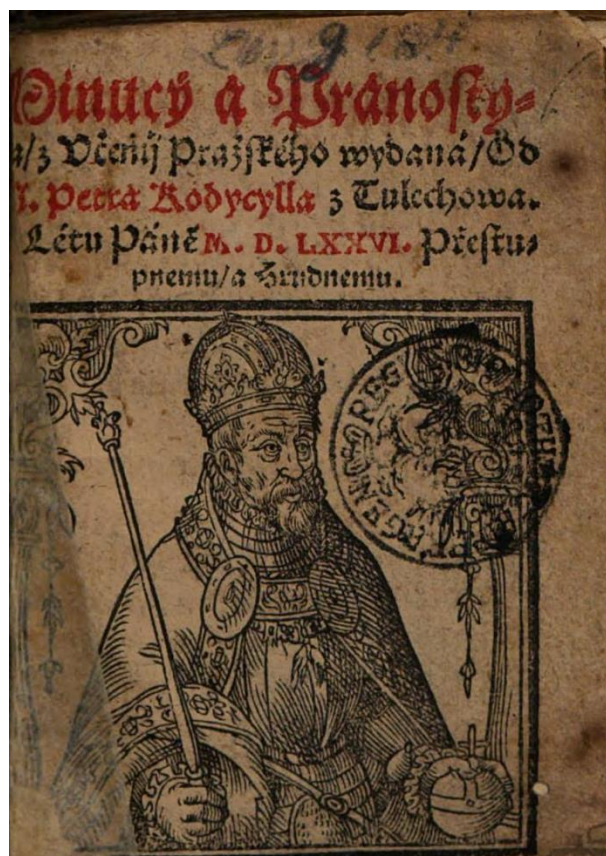 Minucý a Pranosty⸗
a/z Včenij Pražského wydaná/Od
M. Petra Kodycylla z Tulechowa.
Létu Páně M. D. LXXVI. Přestu⸗
pnemu/a Hrudnemu.
REGENS